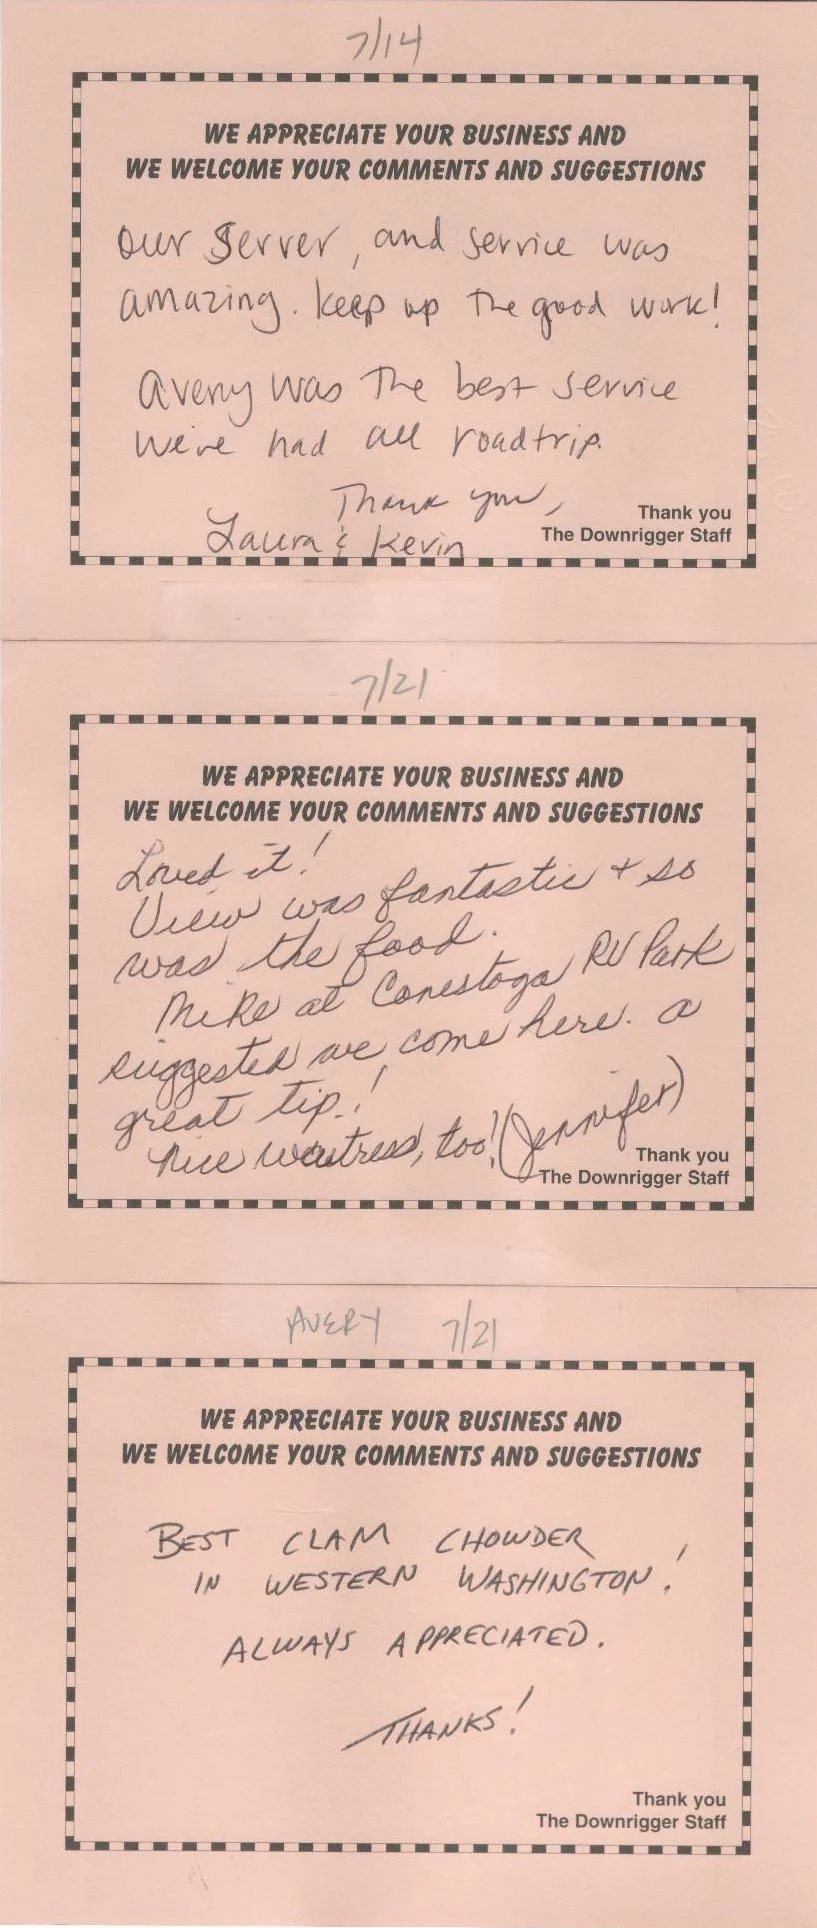 7/14
WE APPRECIATE YOUR BUSINESS AND
WE WELCOME YOUR COMMENTS AND SUGGESTIONS
our server, and service was
amazing. keep up the good work!
avery was the best service
we've had all roadtrip.
Thank you,
Laura & Kevin
Thank you
The Downrigger Staff
7/21
WE APPRECIATE YOUR BUSINESS AND
WE WELCOME YOUR COMMENTS AND SUGGESTIONS
Loved it!
View was fantastic + so
was the food.
Mike at Conestoga RV Park
suggested we come here. a
great tip.!
Nice waitress, too! (Jennifer)
Thank you
The Downrigger Staff
AVERY 7/21
WE APPRECIATE YOUR BUSINESS AND
WE WELCOME YOUR COMMENTS AND SUGGESTIONS
BEST CLAM CHOWDER
IN WESTERN WASHINGTON!
ALWAYS APPRECIATED.
THANKS!
Thank you
The Downrigger Staff